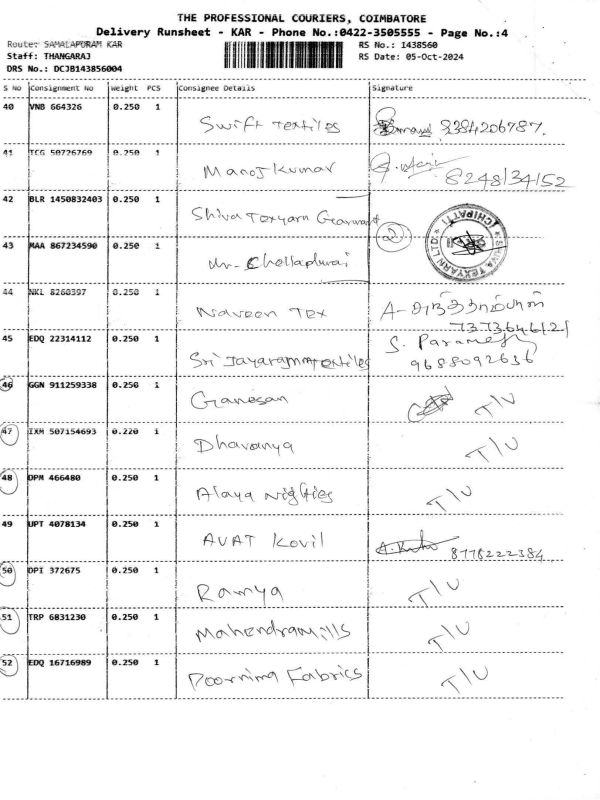 THE PROFESSIONAL COURIERS, COIMBATORE
Delivery Runsheet - KAR - Phone No.:0422-3505555 - Page No.:4
Route: SAMALAPURAM KAR RS No.: 1438560
Staff: THANGARAJ RS Date: 05-Oct-2024
DRS No.: DCJB143856004
S No Consignment No Weight PCS Consignee Details Signature
40 VNB 664326 0.250 1
Swift Textiles 9384206787.
41 TCG 50726769 0.250 1
Manoj Kumar 8248134152
42 BLR 1450832403 0.250 1
Shiva Texyarn 2
43 MAA 867234590 0.250 1
Mr. Chellapurai
SHIVA TEXYARN LTD
44 NKL 8260397 0.250 1
Naveen Tex A-
7373646121
45 EDQ 22314112 0.250 1 S.
Sri Jayaramm Textiles 9688092636
46 GGN 911259338 0.250 1
Ganesan T/U
47 IXM 507154693 0.220 1
Dhavanya T/U
48 DPM 466480 0.250 1
Alaya Nighties T/U
49 UPT 4078134 0.250 1
AVAT Kovil 8778222384
50 DPI 372675 0.250 1
Ramya T/U
51 TRP 6831230 0.250 1
Mahendra mills T/U
52 EDQ 16716989 0.250 1
Poornima Fabrics T/U